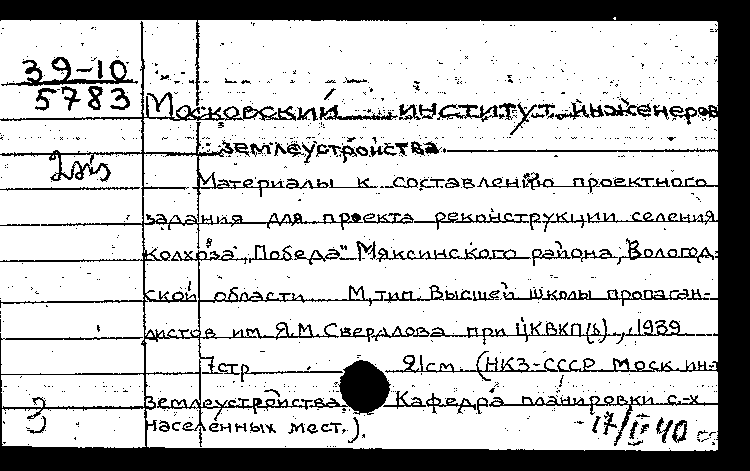 39-10
5783
Московский институт инженеров
землеустройства.
Материалы к составлению проектного
задания для проекта реконструкции селения
колхоза „Победа" Мяксинского района, Вологод-
ской области М, тип. Высшей школы пропаган-
дистов им. Я.М. Свердлова при ЦКВКП(б)., 1939
7стр. 21см. (НКЗ-СССР Моск. ин-т
землеустройства. Кафедра планировки с.-х.
населенных мест.).
3
17/II 40